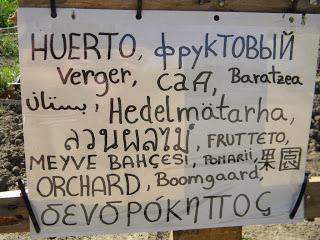 HUERTO, фруктовый
Verger, сад, Baratzea
بستان, Hedelmätarha,
สวนผลไม้, FRUTTETO,
MEYVE BAHÇESİ, POMARII, 果園
ORCHARD, Boomgaard,
δενδρόκηπος